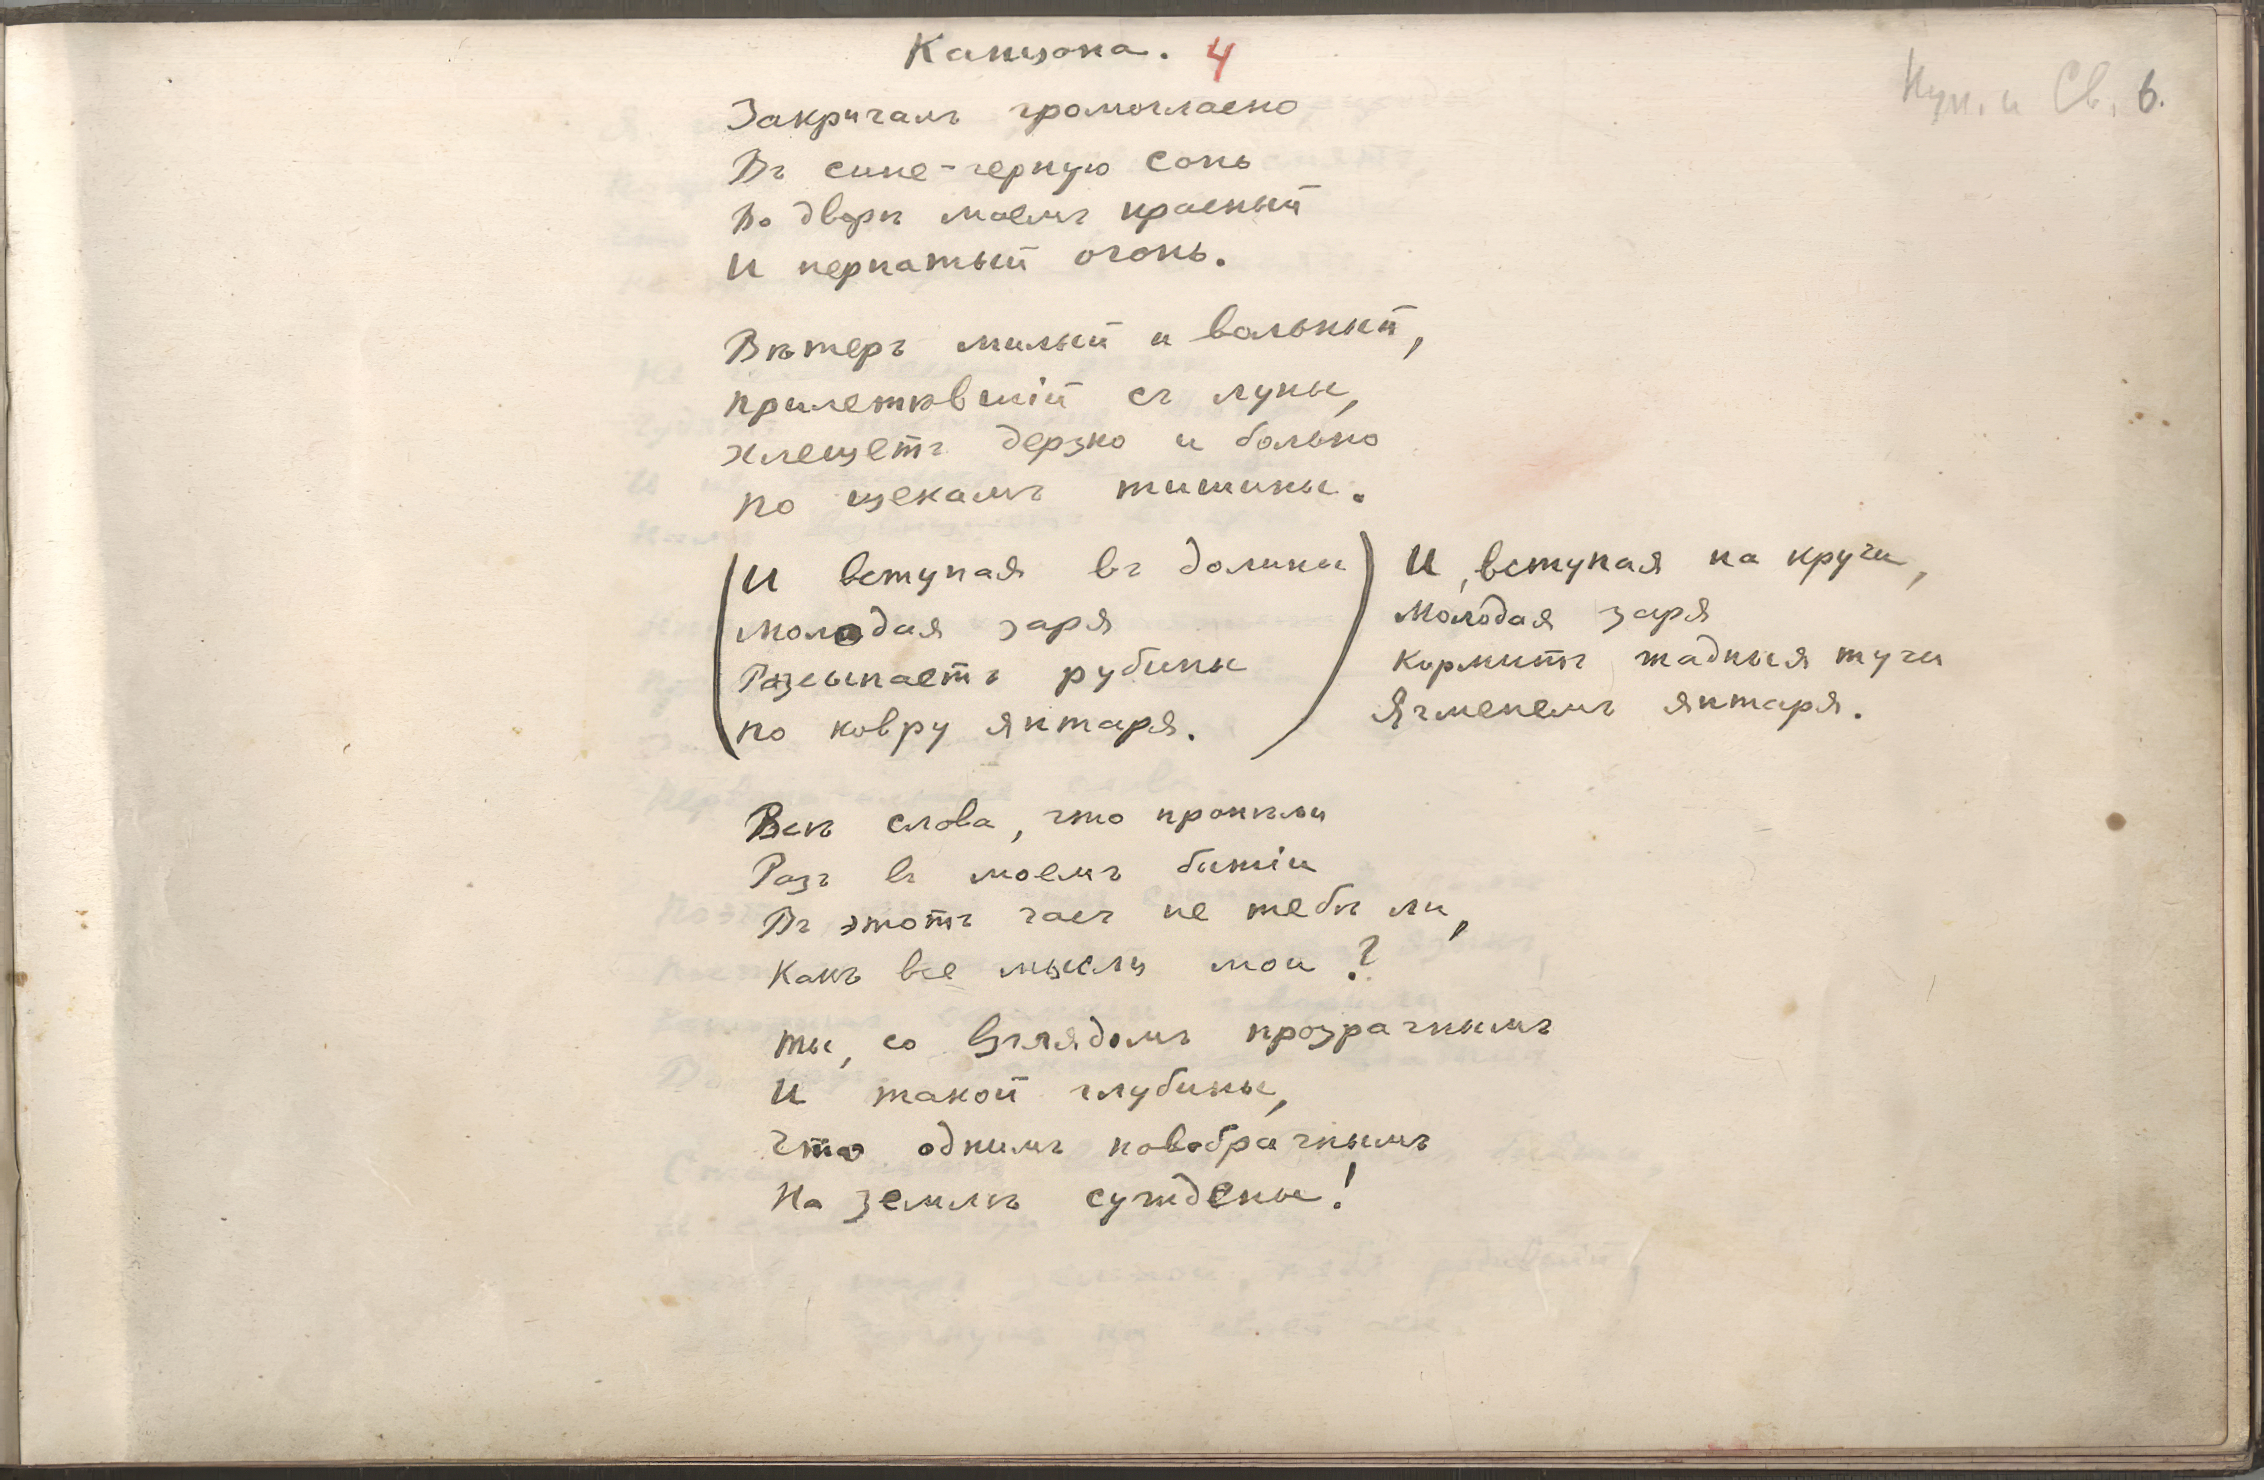 Канцона. 4
Нун. и Св. 6.
Закричалъ громогласно
Въ сине-черную сонь
Во дворѣ моемъ красный
И пернатый огонь.
Вѣтеръ милый и вольный,
прилетѣвшій съ луны,
хлещетъ дерзко и больно
по щекамъ тишины.
(И вступая въ долины)
молодая заря
Разсыпаетъ рубины
по ковру янтаря.
И, вступая на кручи,
Молодая заря
Кормитъ жадныя тучи
Ячменемъ янтаря.
Всѣ слова, что пропѣли
Разъ въ моемъ бытіи
Въ этотъ часъ не тебѣ ли,
Какъ все мысли мои?
ты, со взглядомъ прозрачнымъ
И такой глубины,
Что однимъ новобрачнымъ
На землѣ суждены!